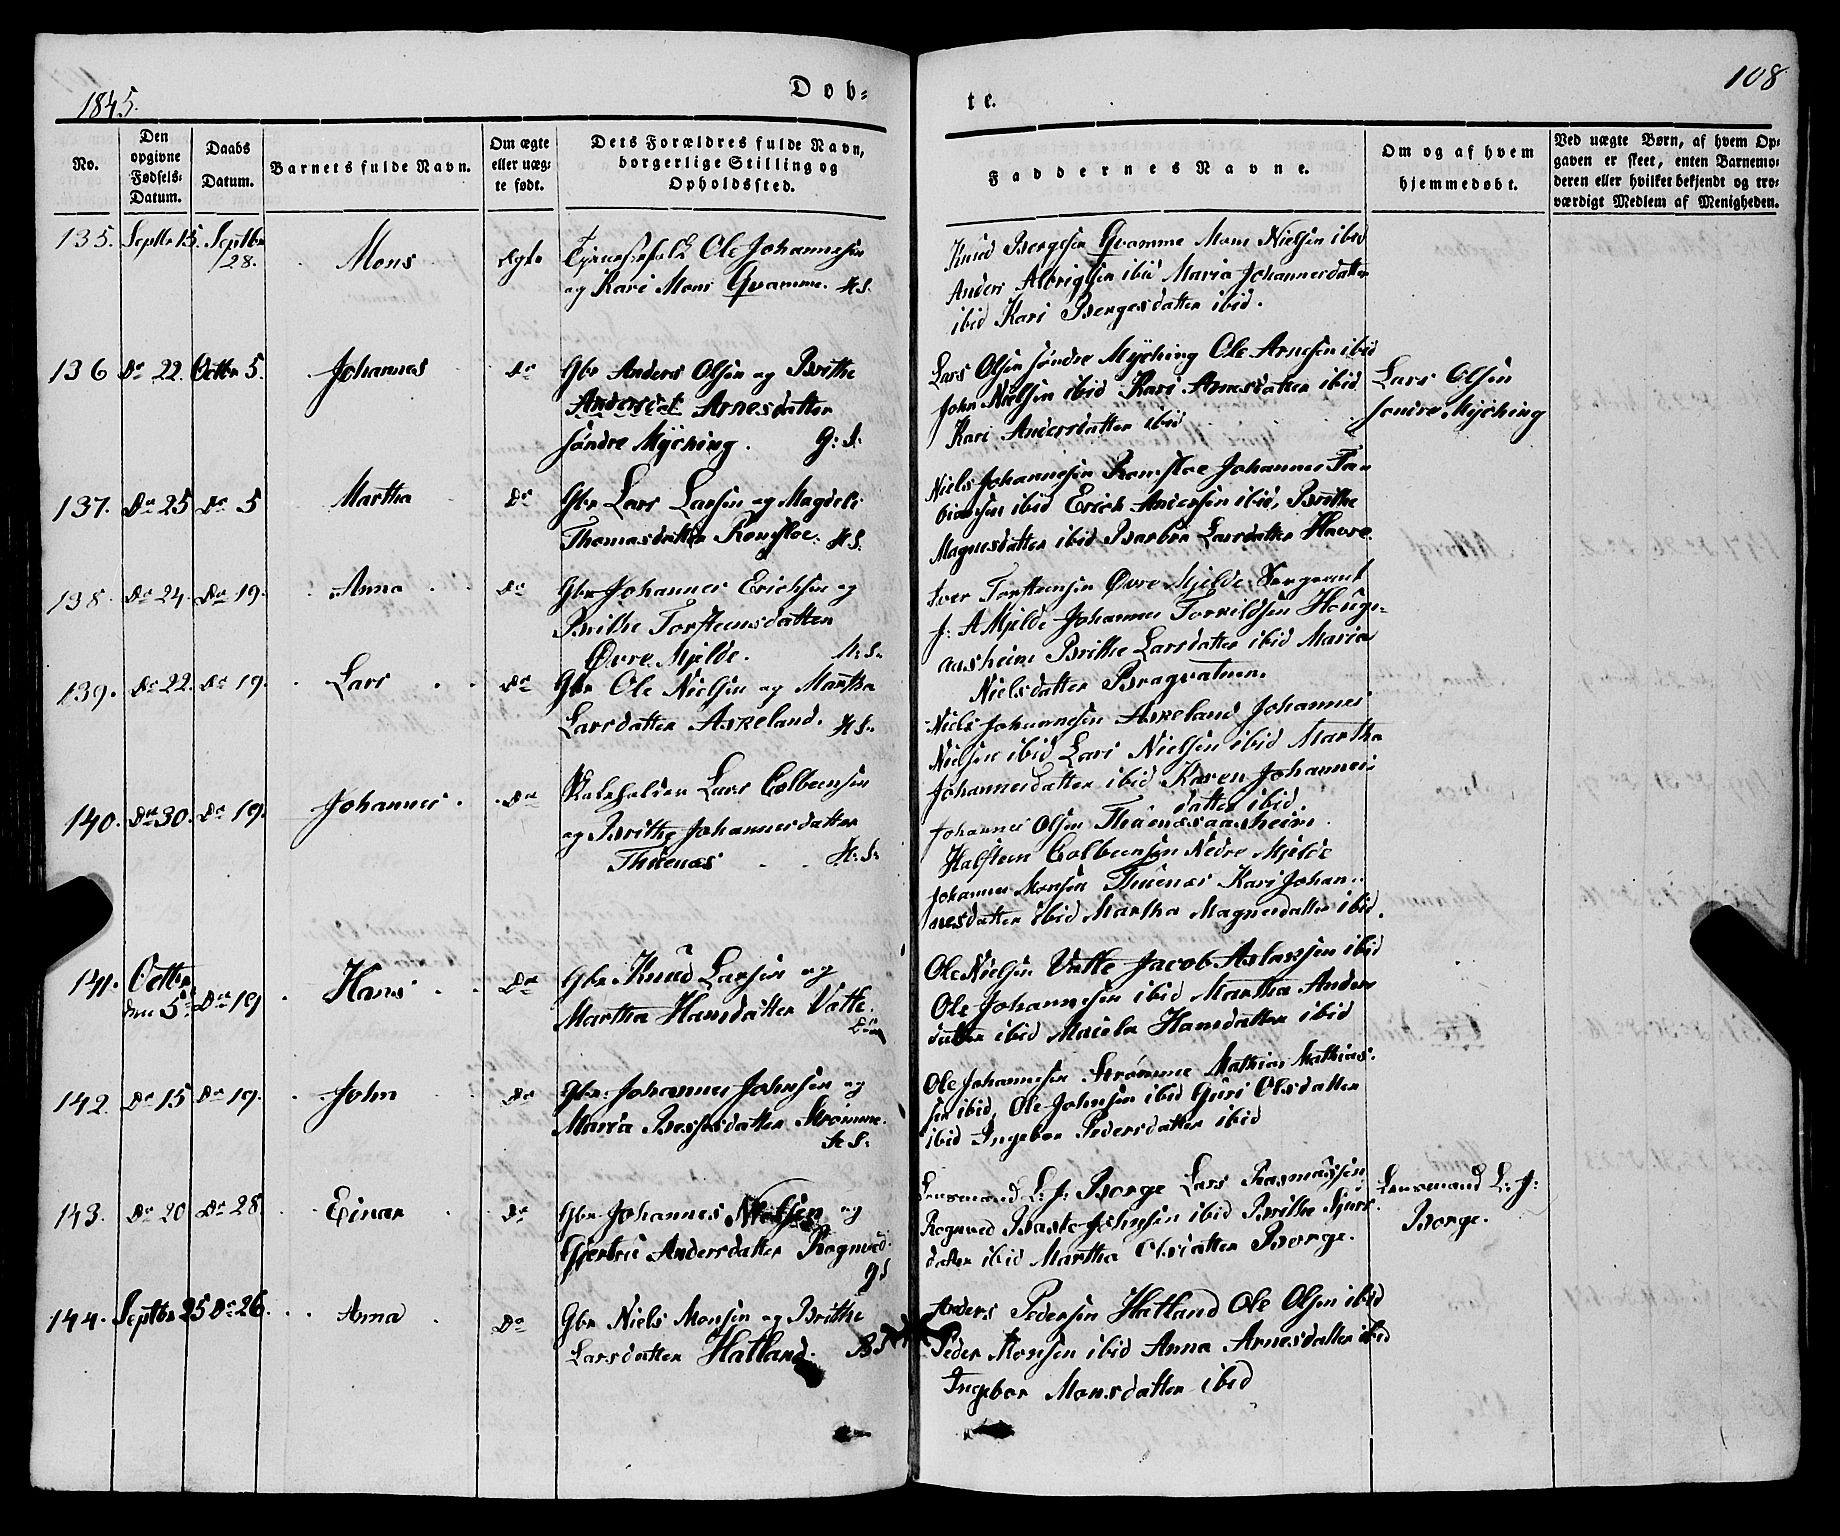 1845.
Døb-
te.
108
No.
Den opgivne Fødsels-Datum.
Daabs Datum.
Barnets fulde Navn.
Om ægte eller uægte født.
Dets Forældres fulde Navn, borgerlige Stilling og Opholdssted.
Faddernes Navne.
Om og af hvem hjemmedøbt.
Ved uægte Børn, af hvem Opgaven er skeet, enten Barnemoderen eller hvilket bekjendt og troværdigt Medlem af Menigheden.
135. Septbr 15. Septbr /28. Mons Ægte
Tjenestefolk Ole Johannesen
og Kari Mons Qvamme. H.S.
Knud Bergesen Qvamme Mons Nielsen ibid
Anders Albrigtsen ibid Maria Johannesdatter
ibid Kari Bergesdatter ibid.
136 Do 22. Octbr 5. Johannes Do
Gbr Anders Olsen og Brithe
Andersdat Arnesdatter
søndre Mÿching. G:S:
Lars Olsen søndre Mÿching Ole Arnesen ibid
John Nielsen ibid Kari Arnesdatter ibid
Kari Andersdatter ibid
Lars Olsen
søndre Mÿching
137. Do 25 Do 5 Martha Do
Gbr Lars Larsen og Magdeli
Thomasdatter Romsloe. H.S.
Niels Johannesen Romsloe Johannes Fa
biansen ibid Erich Andersen ibid, Brithe
Magnesdatter ibid Barbra Larsdatter Havre.
138. Do 24. Do 19. Anna Do
Gbr Johannes Erichsen og
Brithe Torsteensdatter
Øvre Mjelde. H.S.
Iver Torsteensen Øvre Mjelde, Sergeant
J. A Mjelde Johannes Torrildsen Houge
aasheim Brithe Larsdatter ibid Maria
Nielsdatter Bragvatnen.
139. Do 22. Do 19. Lars Do
Gbr Ole Nielsen og Martha
Larsdatter Askeland. H.S.
Niels Johannesen Askeland Johannes
Nielsen ibid Lars Nielsen ibid Martha
Johannesdatter ibid Karen Johannes-
datter ibid.
140. Do 30. Do 19. Johannes. Do
Lars Colbensen
og Brithe Johannesdatter
Thuenæs H:S:
Johannes Olsen Thuenæsaasheim.
Halsteen Colbensen Nedre Mjelde
Johannes Monsen Thuenæs Kari Johan-
nesdatter ibid Martha Magnesdatter ibid.
141. Octbr den 5te Do 19 Hans Do
Gbr Knud Larsen og
Martha Hansdatter Vatle.
Ole Nielsen Vatle Jacob Aslaksen ibid
Ole Johannesen ibid Martha Anders
datter ibid Hansdatter ibid
142. Do 15 Do 19. John Do
Gbr. Johannes Johnsen og
Maria Bessesdatter Strømme.
H.S.
Ole Johannesen Strømme Mathias Mathias-
sen ibid, Ole Johnsen ibid Guri Olsdatter
ibid Ingebor Pedersdatter ibid
143. Do 20 Do 28 Einar Do
Gbr Johannes Nielsen og
Gjertru Andersdatter Rognved.
GS
Lensmand L: J: Borge Lars Rasmussen
Rognved Johnsen ibid Brithe Sjurs-
datter ibid Martha Olsdatter Borge.
Lensmand L: J:
Borge.
144. Septbr 25 Do 26. Anna Do
Gbr Niels Monsen og Brithe
Larsdatter Hatland. BS
Anders Pedersen Hatland Ole Olsen ibid
Peder Monsen ibid Anna Arnesdatter ibid
Ingebor Monsdatter ibid